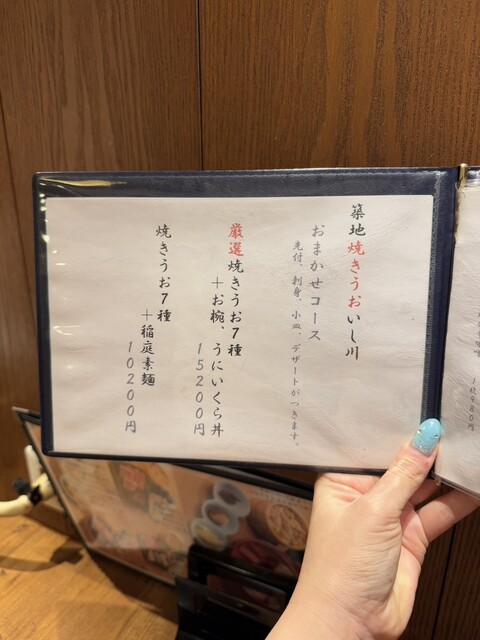 築地焼きうおいし川
おまかせコース
先付、刺身、小皿、デザートがつきます。
厳選焼きうお7種
+お椀、うにいくら丼
15200円
焼きうお7種
+稲庭素麺
10200円
980円